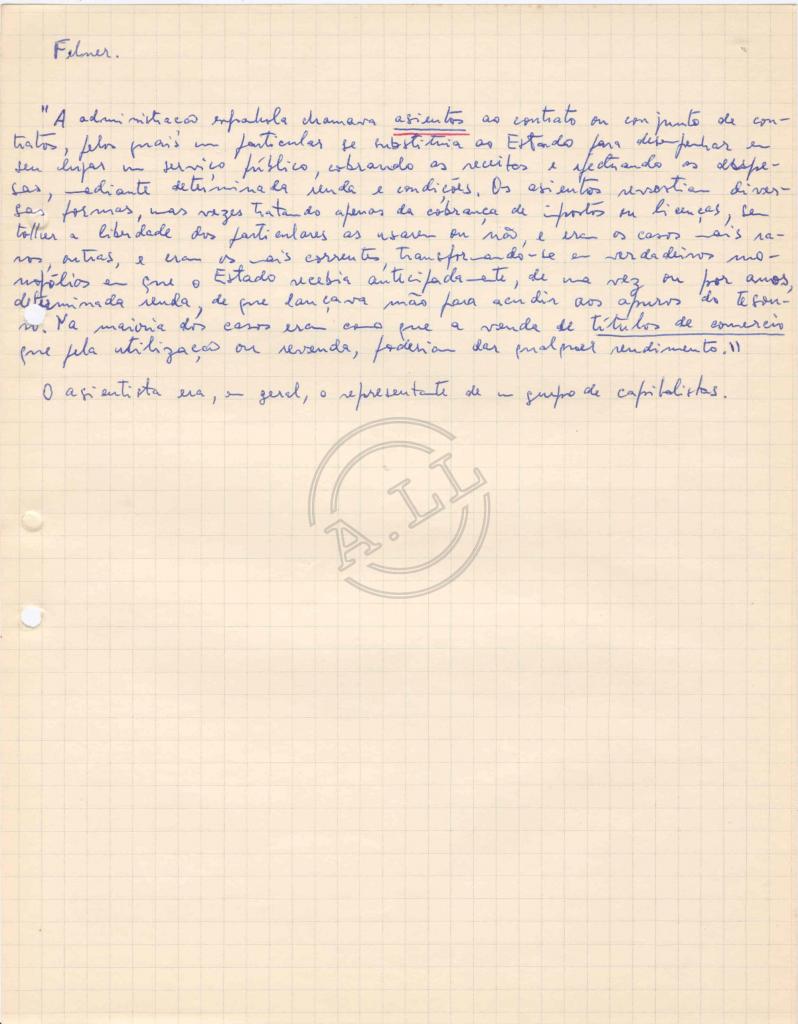 Felner.
"A administração espanhola chamava asientos ao contrato ou conjunto de con-
tratos, pelos quais um particular se substituia ao Estado para desempenhar em
seu lugar um serviço público, cobrando as receitas e efectuando as despe-
sas, mediante determinada renda e condições. Os asientos revestiam diver-
sas formas, umas vezes tratando apenas da cobrança de impostos ou licenças, sem
tolher a liberdade dos particulares as usarem ou não, e eram os casos mais ra-
ros, outras, e eram os mais correntes, transformando-se em verdadeiros mo-
nopólios em que o Estado recebia antecipadamente, de uma vez ou por anos,
determinada renda, de que lançava mão para acudir aos apuros do tesou-
ro. Na maioria dos casos eram como que a venda de títulos de comercio
que pela utilização ou revenda, poderiam dar qualquer rendimento."
O asientista era, em geral, o representante de um grupo de capitalistas.
A.LL